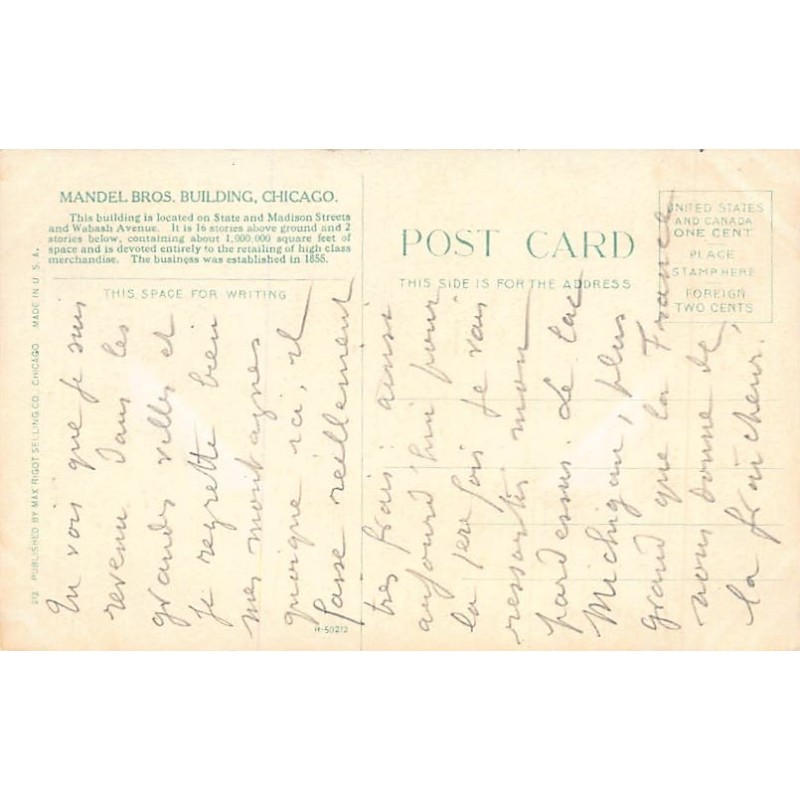 MANDEL BROS. BUILDING, CHICAGO.
This building is located on State and Madison Streets
and Wabash Avenue. It is 16 stories above ground and 2
stories below, containing about 1,000,000 square feet of
space and is devoted entirely to the retailing of high class
merchandise. The business was established in 1855.
THIS SPACE FOR WRITING
POST CARD
THIS SIDE IS FOR THE ADDRESS
UNITED STATES
AND CANADA
ONE CENT
PLACE
STAMP HERE
FOREIGN
TWO CENTS
212 PUBLISHED BY MAX RIGOT SELLING CO., CHICAGO MADE IN U. S. A.
R-50212
Tu vois que je suis
revenu dans les
grandes villes et
je regrette bien
mes montagnes
quoique ici, il
fasse réellement
très frais ainsi
aujourd'hui pour
la 1ere fois je vais
ressortir mon
pardessus. Le lac
Michigan, plus
grand que la France
nous donne de
la fraîcheur.